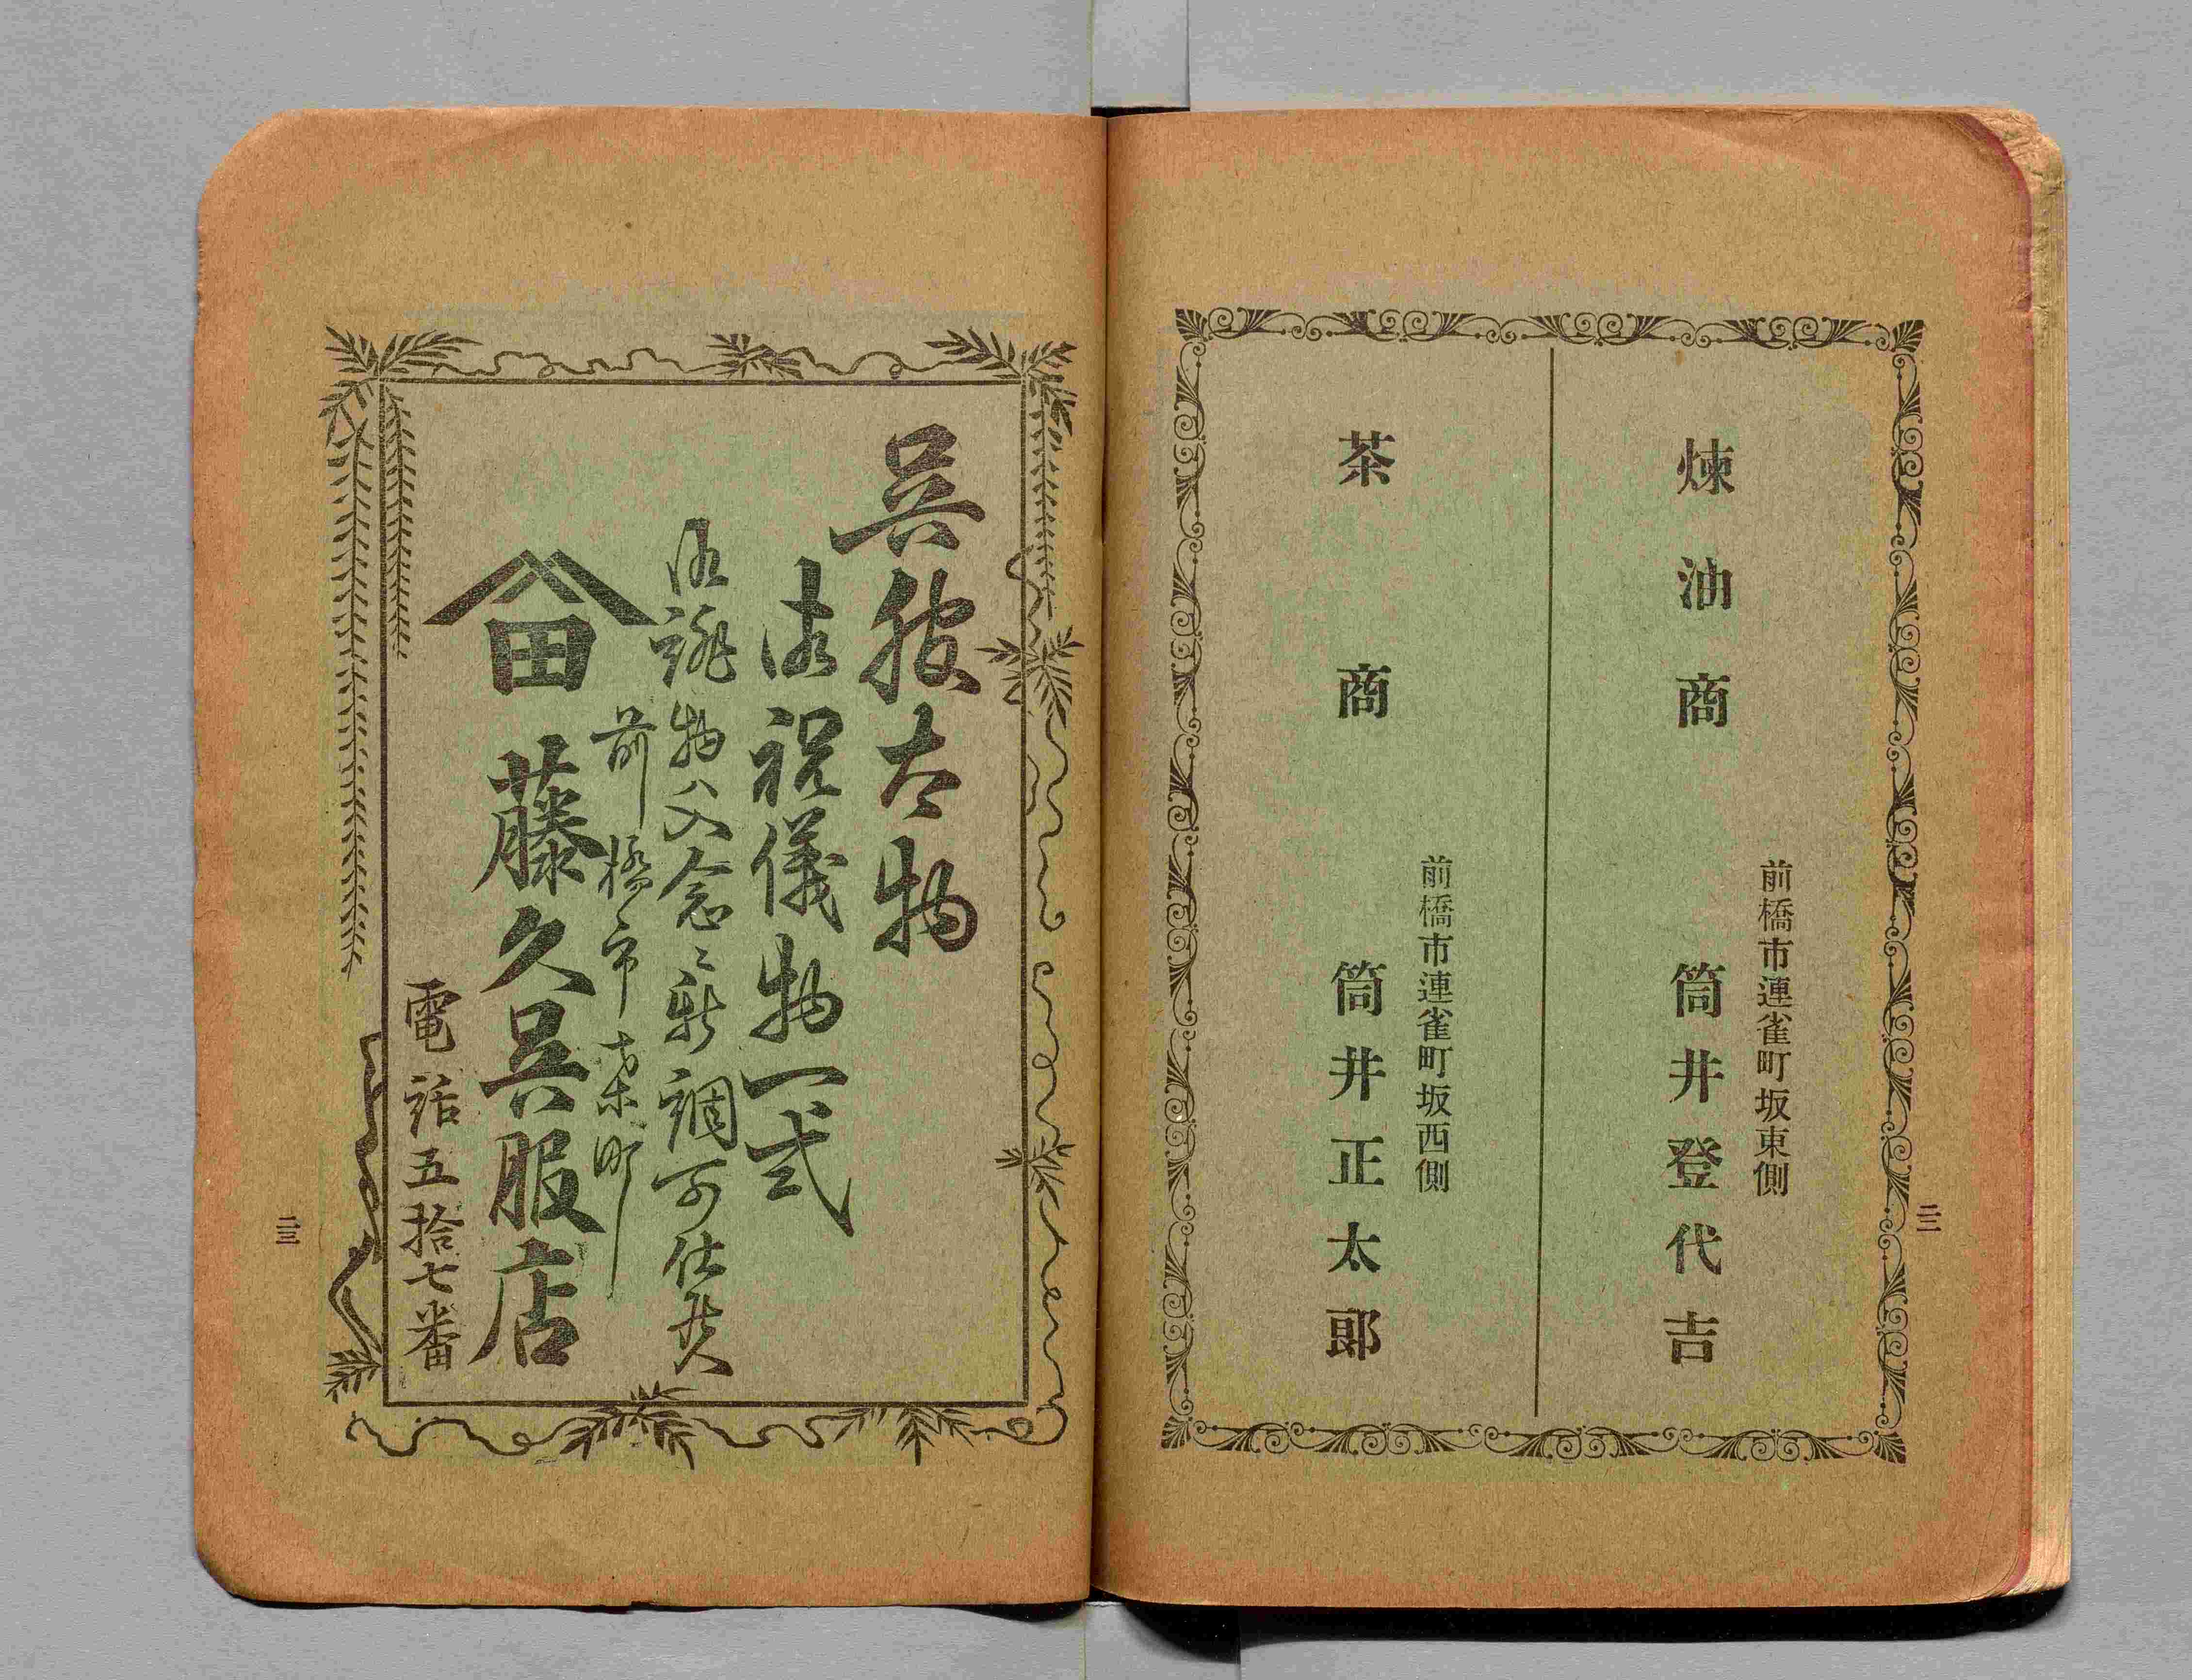 二二
前橋市連雀町坂東側
煉油商 筒井登代吉
前橋市連雀町坂西側
茶商 筒井正太郎
呉服太物
御祝儀物一式
御誂物ハ入念ニ新調可仕候
前橋市桒町
田 藤久呉服店
電話五拾七番
二三